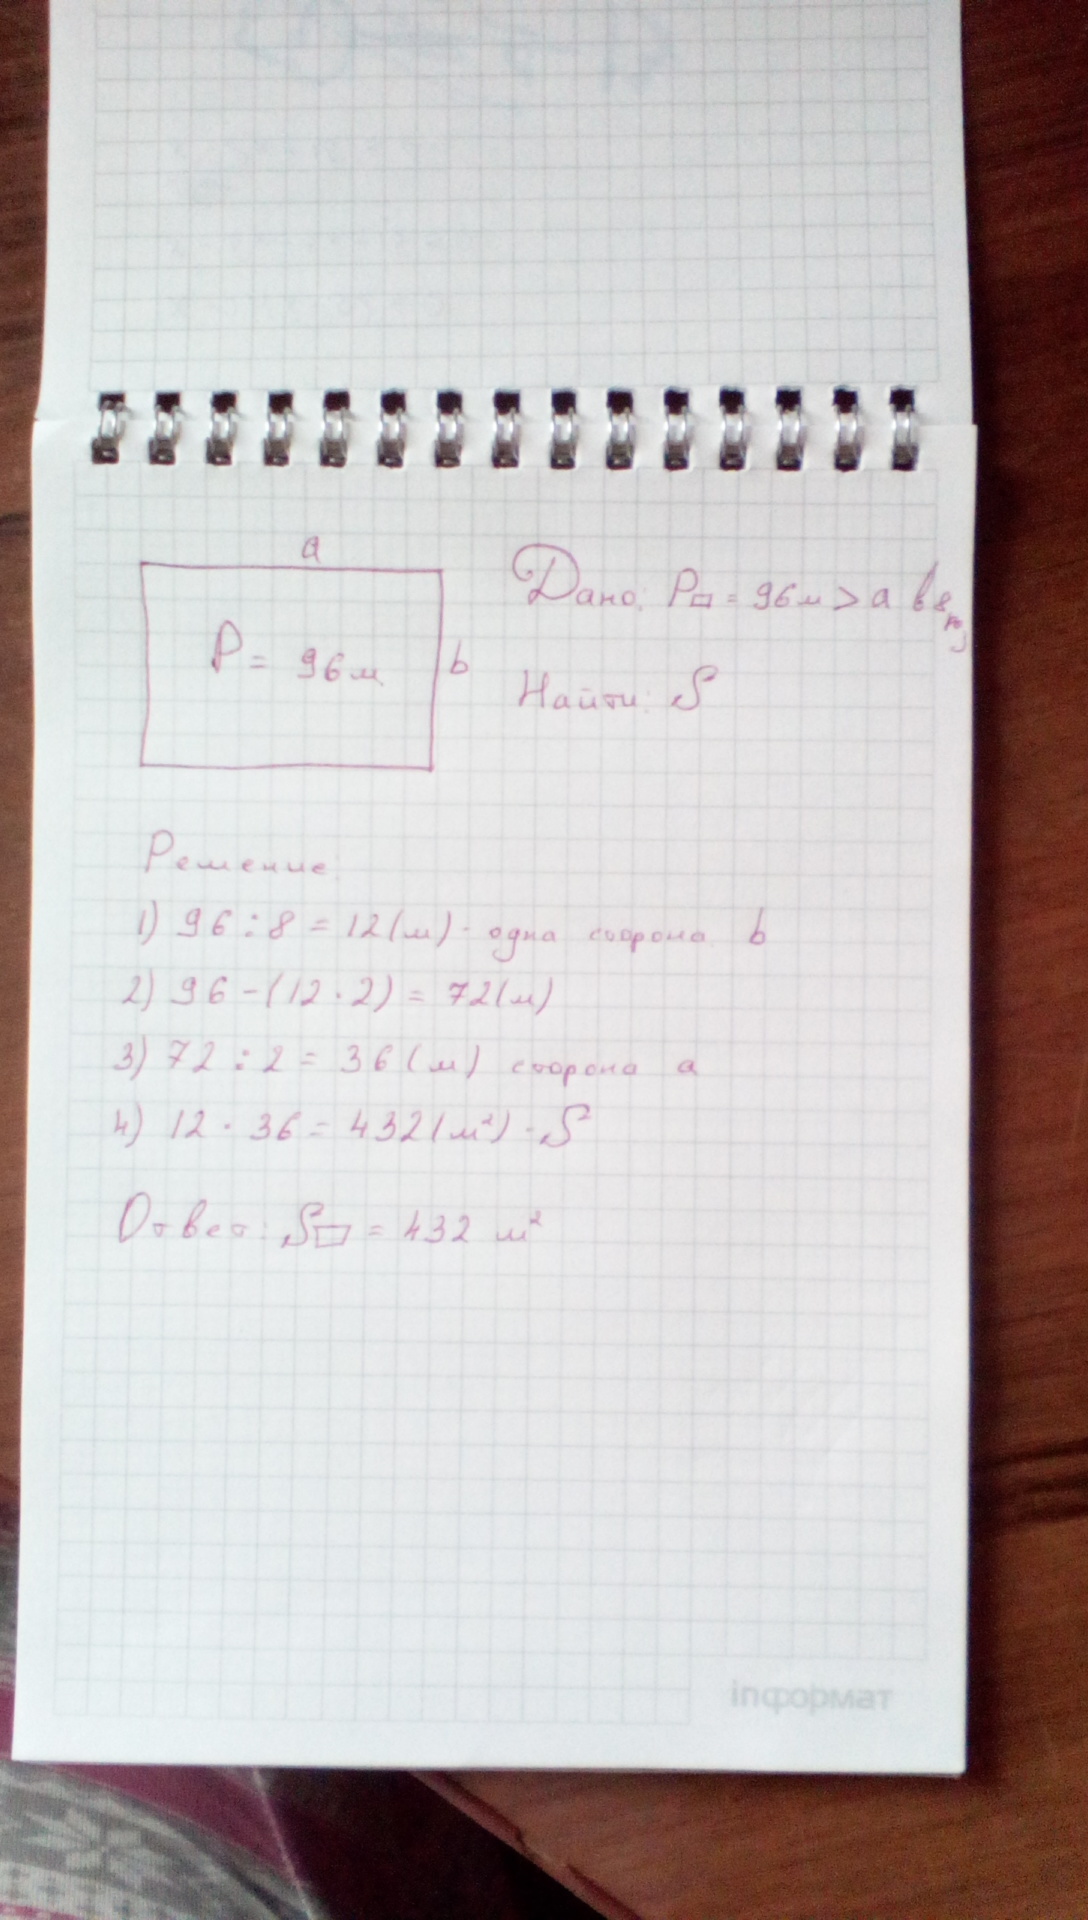 a
P = 96м
b
Дано: P▭ = 96м > a в 8 р
Найти: S
Решение:
1) 96 : 8 = 12(м) - одна сторона b
2) 96 - (12 · 2) = 72(м)
3) 72 : 2 = 36(м) сторона a
4) 12 · 36 = 432(м²) - S
Ответ: S▭ = 432 м²
inформат